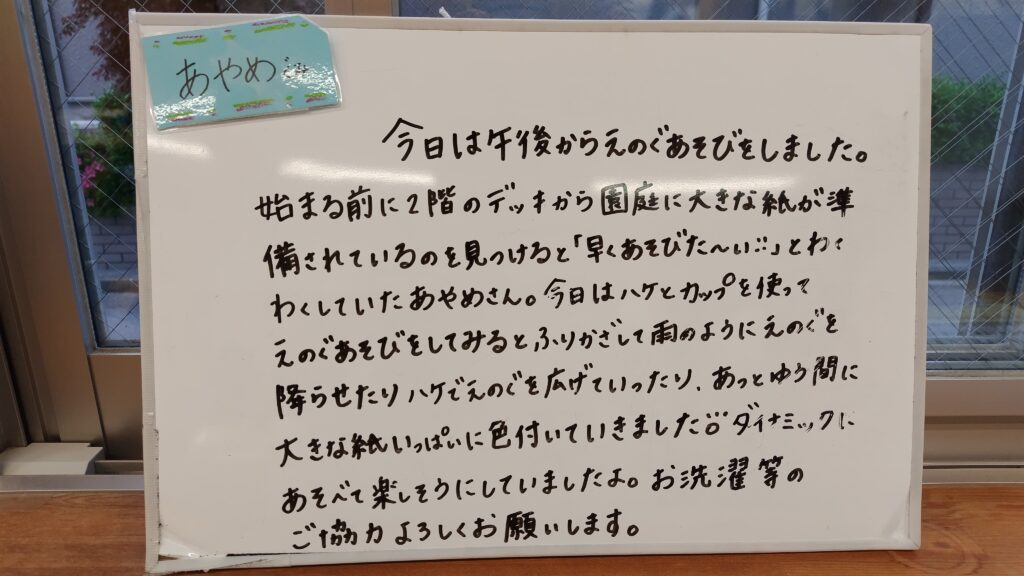 あやめ
今日は午後からえのぐあそびをしました。
始まる前に2階のデッキから園庭に大きな紙が準
備されているのを見つけると「早くあそびた〜い!!」とわく
わくしていたあやめさん。今日はハケとカップを使って
えのぐあそびをしてみると、ふりかざして雨のようにえのぐを
降らせたりハケでえのぐを広げていったり、あっとゆう間に
大きな紙いっぱいに色付いていきました ダイナミックに
あそべて楽しそうにしていましたよ。お洗濯等の
ご協力よろしくお願いします。